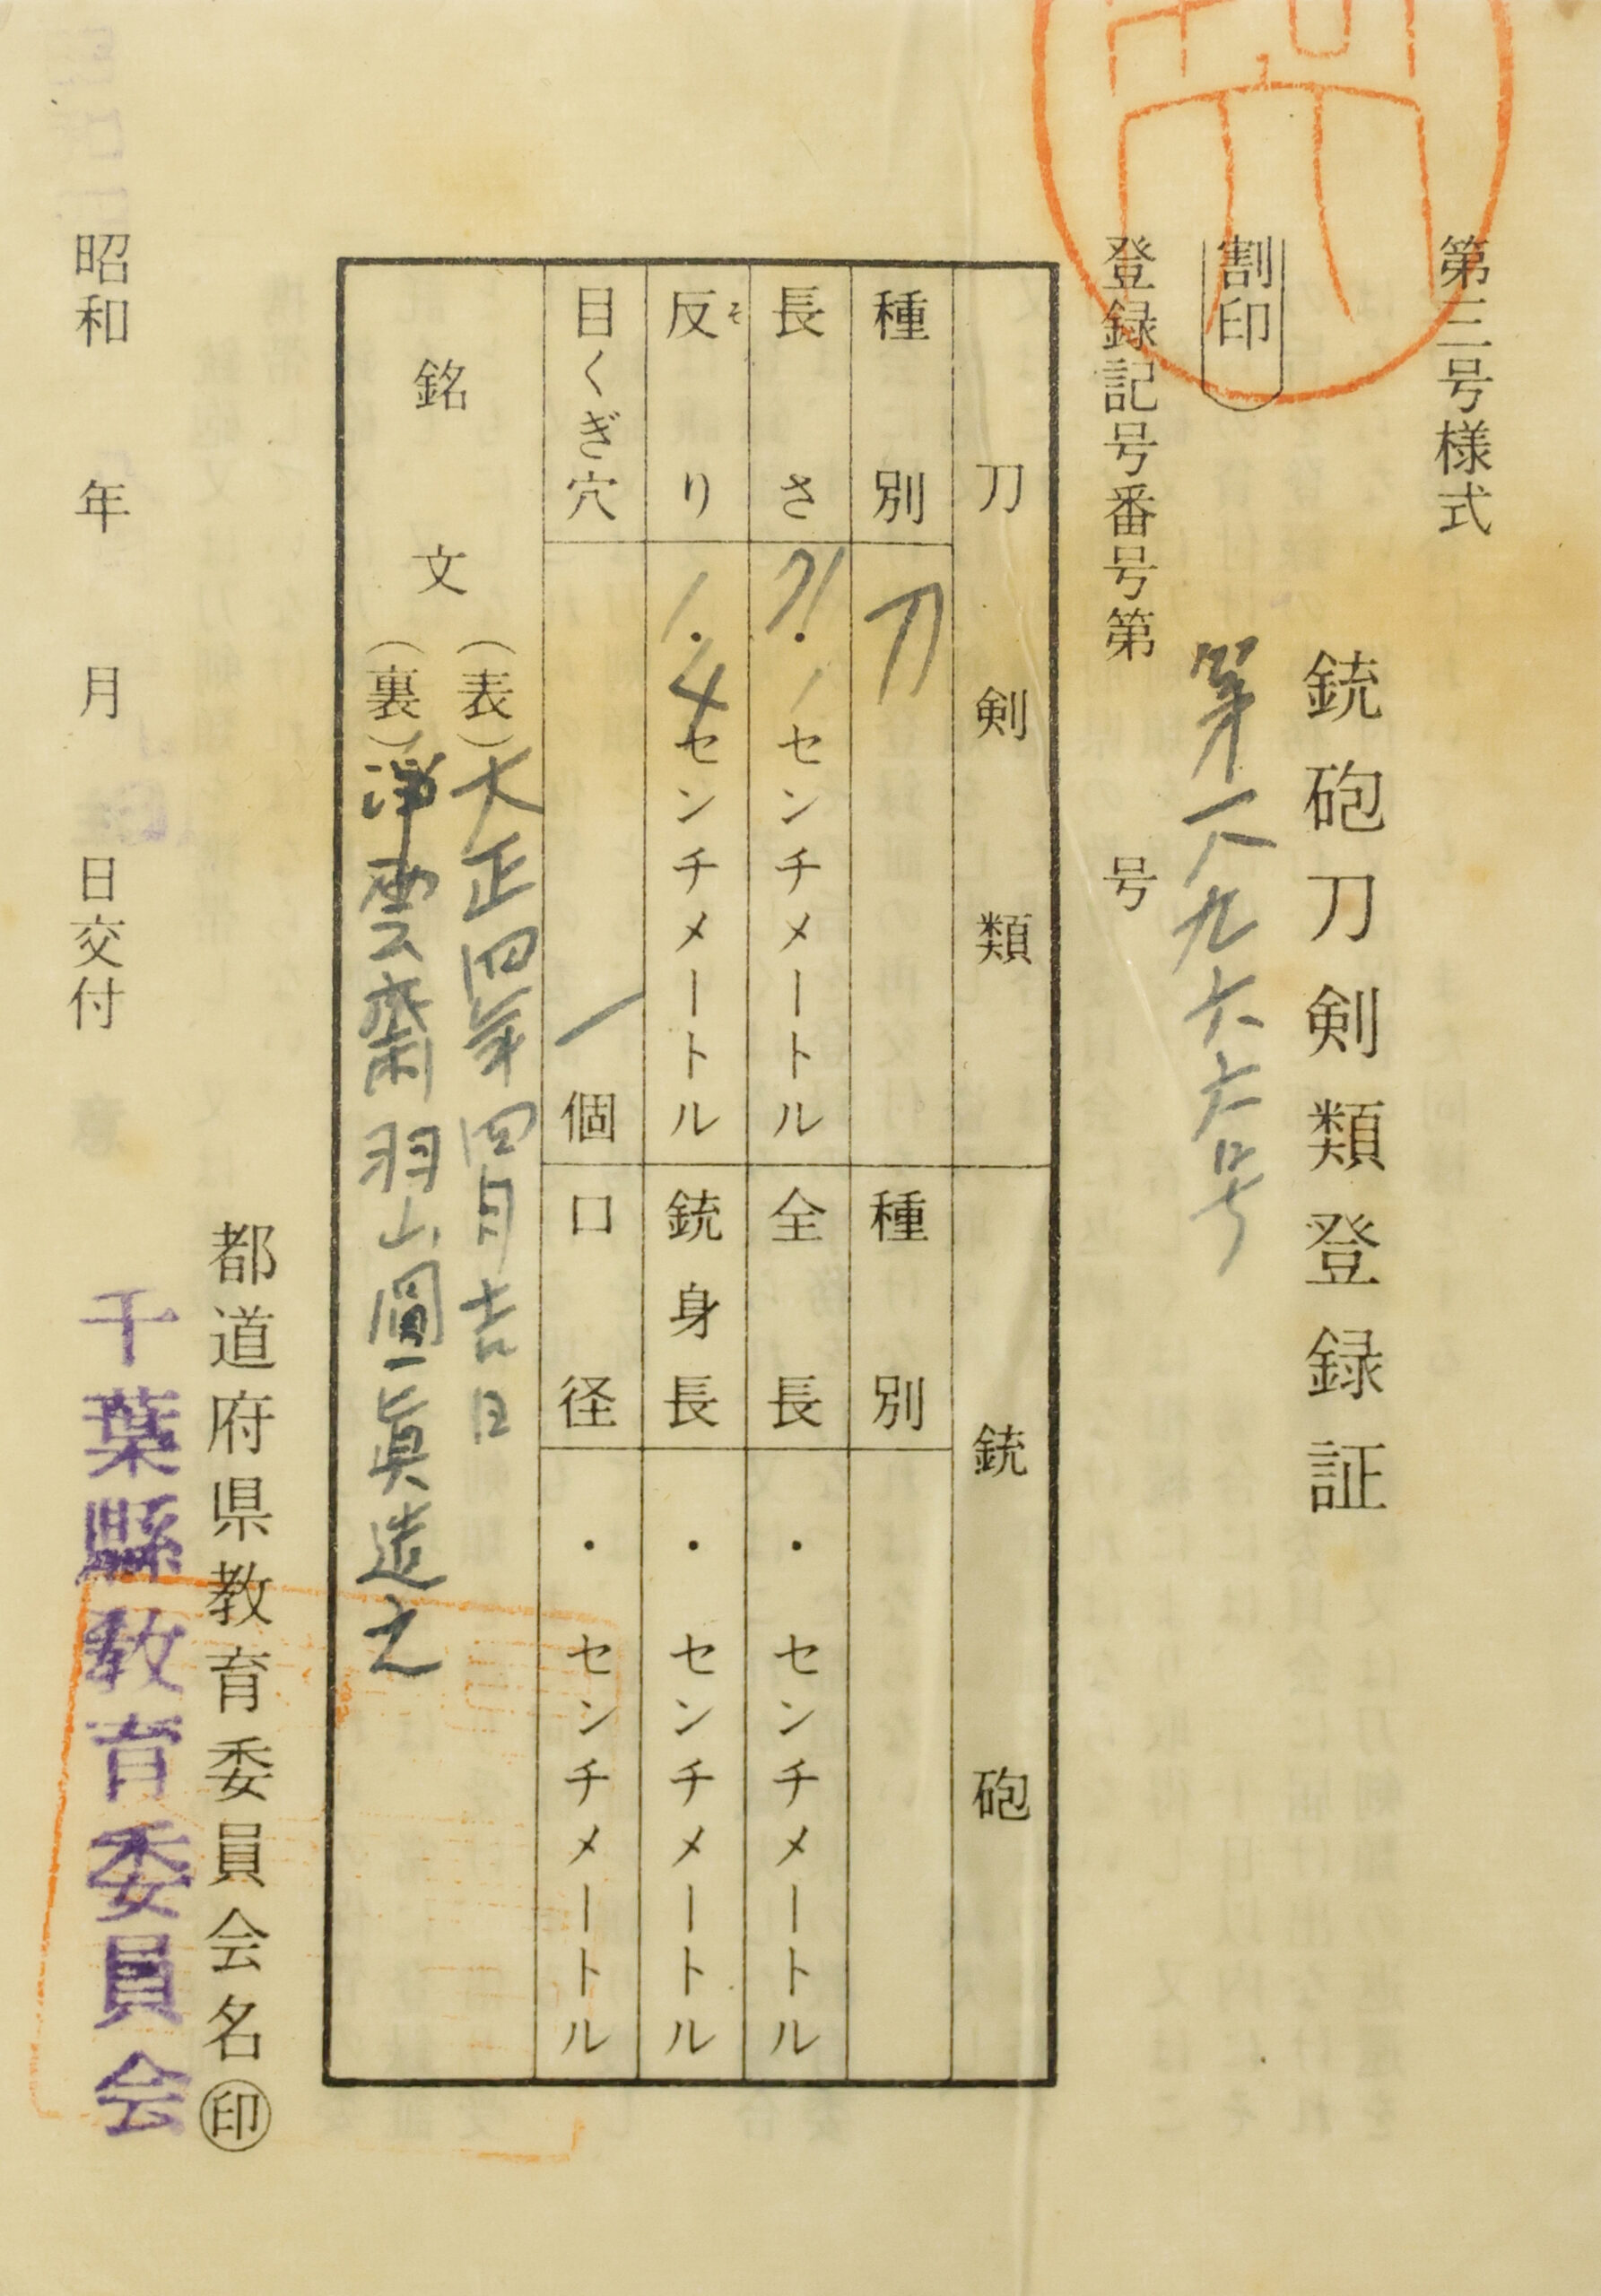 第三号様式
銃砲刀剣類登録証
割印
第一八九六六号
登録記号番号第 号
刀剣類
銃砲
種別 刀
種別
長さ 71.1センチメートル
全長 ・ センチメートル
反り 1.4センチメートル
そ
銃身長 ・ センチメートル
目くぎ穴 一個
口径 ・ センチメートル
銘文
(表)大正四年四月吉日
(裏)浄雲齋羽山圓眞造之
都道府県教育委員会名㊞
千葉縣教育委員会
昭和 年 月 日交付